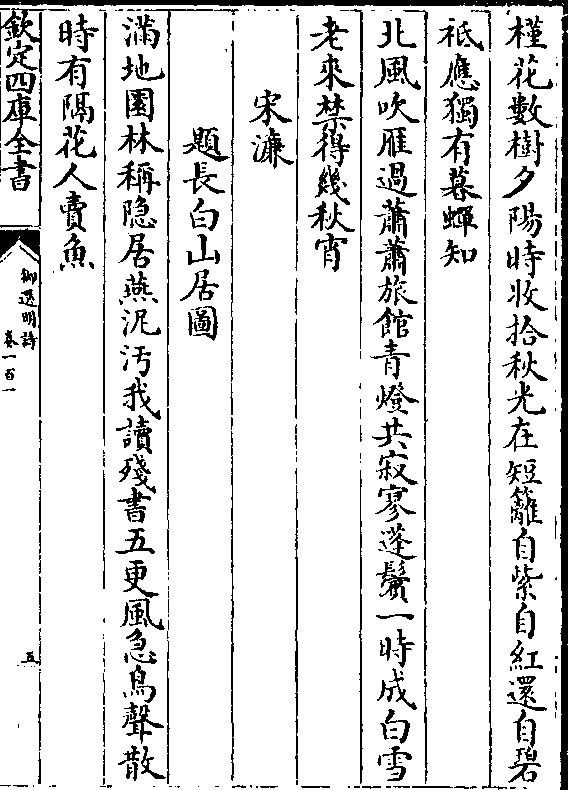 槿花數樹夕陽時收拾秋光在短籬自紫自紅還自碧
祇應獨有暮蟬知
北風吹雁過蕭蕭旅館青燈共寂寥蓬鬢一時成白雪
老來禁得幾秋宵
宋濂
題長白山居圖
滿地園林稱隠居燕泥汚我讀殘書五更風急鳥聲散
時有隔花人賣魚
欽定四庫全書
御選明詩
卷一百一
五